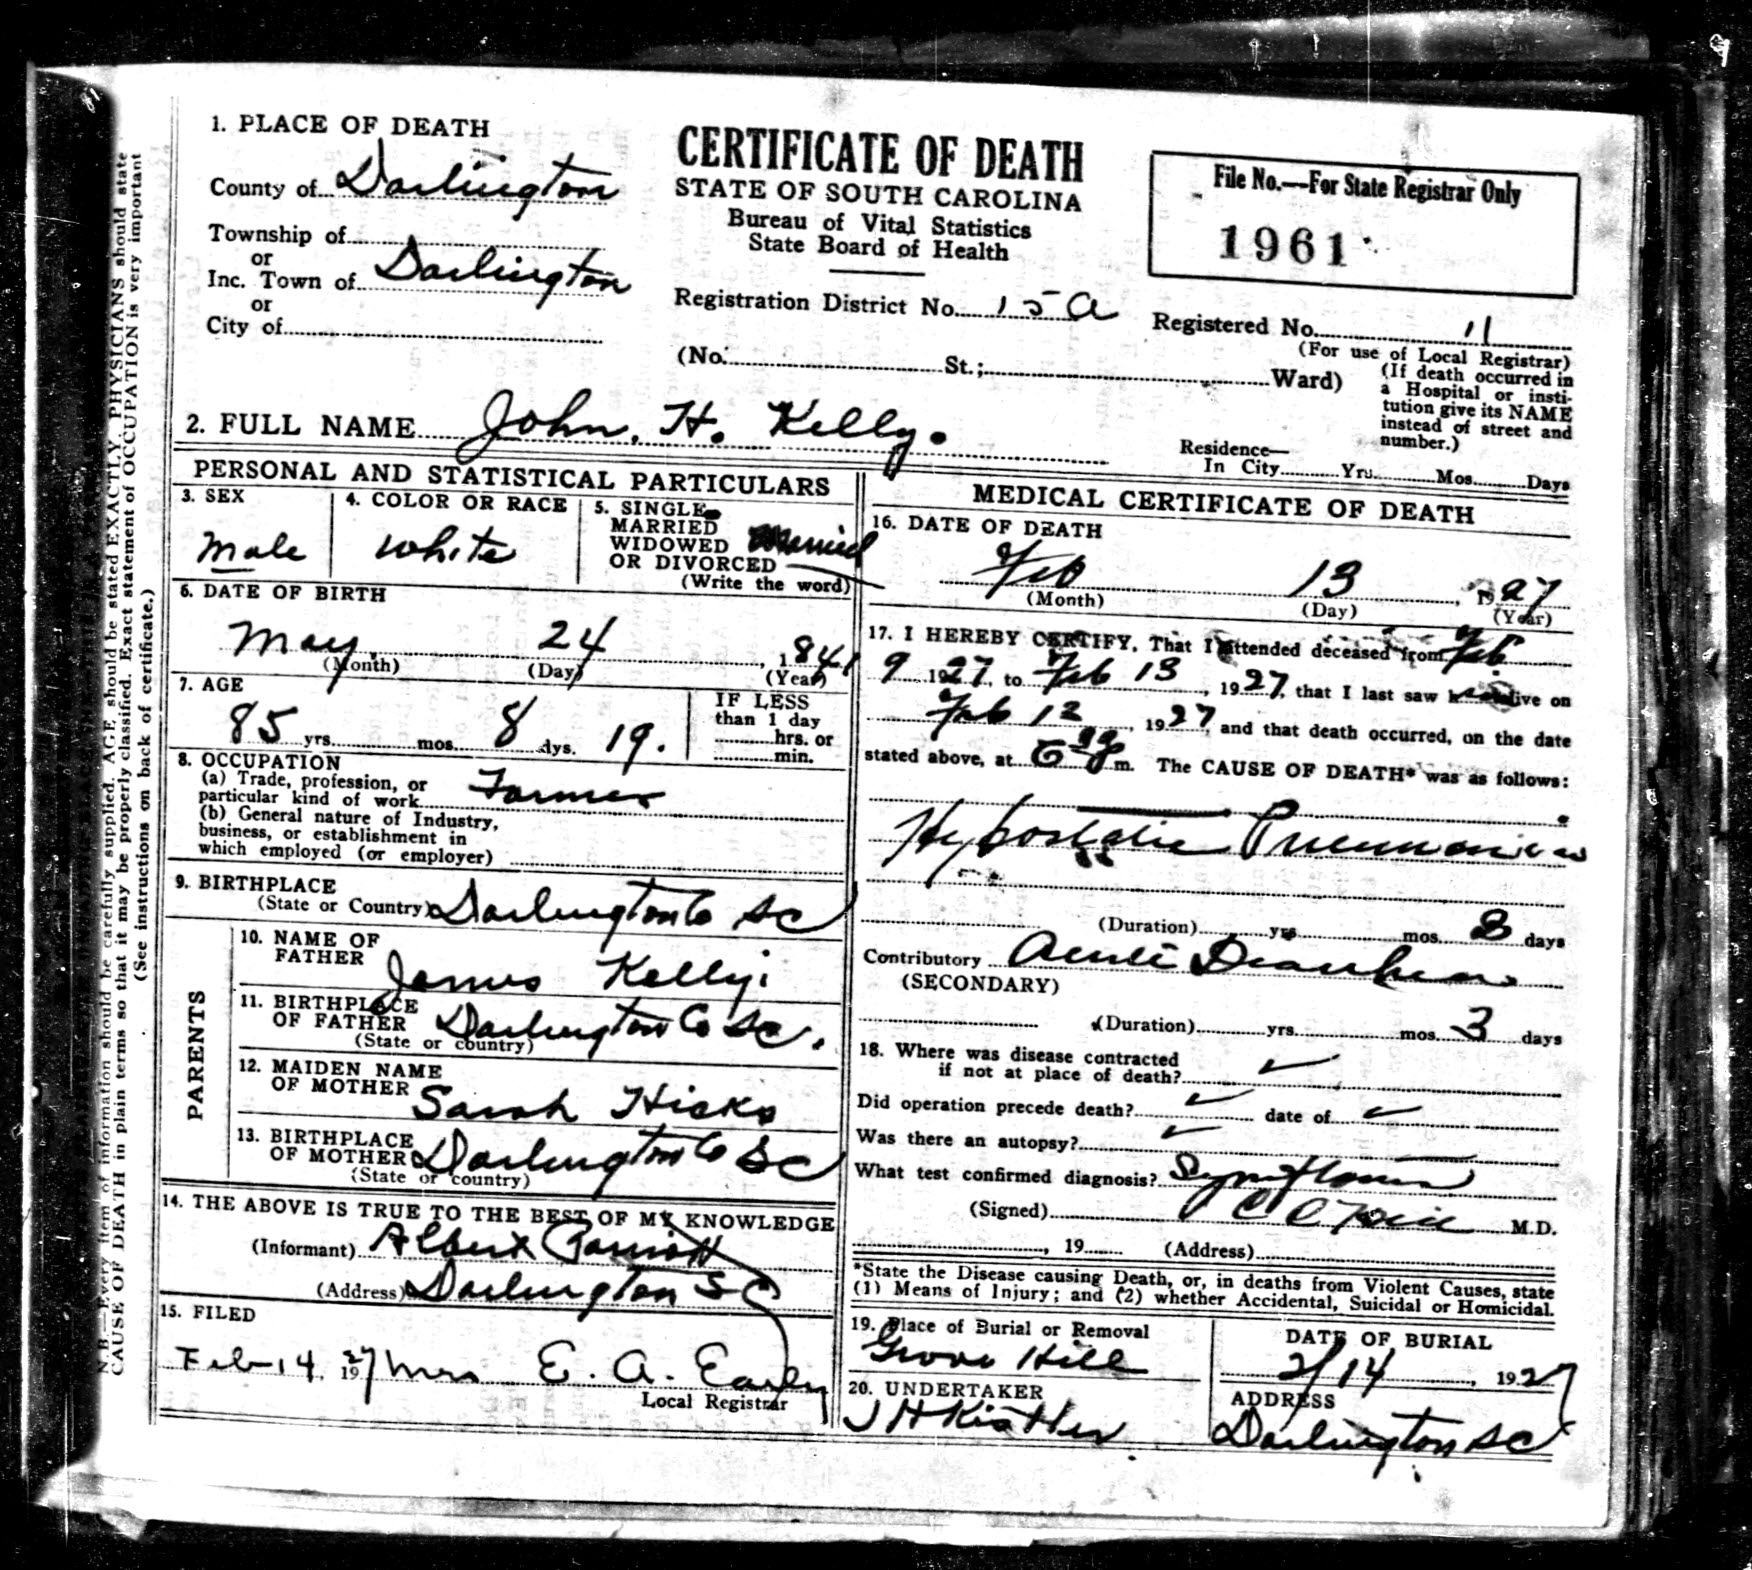 1. PLACE OF DEATH
County of Darlington
Township of
or
Inc. Town of Darlington
or
City of
CERTIFICATE OF DEATH
STATE OF SOUTH CAROLINA
Bureau of Vital Statistics
State Board of Health
Registration District No. 15 A
File No.—For State Registrar Only
1961
Registered No. 11
(For use of Local Registrar)
(No. St.; Ward)
(If death occurred in
a Hospital or insti-
tution give its NAME
instead of street and
number.)
2. FULL NAME John. H. Kelly.
Residence—
In City Yrs. Mos. Days
PERSONAL AND STATISTICAL PARTICULARS
3. SEX
Male
4. COLOR OR RACE
White
5. SINGLE
MARRIED
WIDOWED Married
OR DIVORCED
(Write the word)
6. DATE OF BIRTH
May 24, 1841
(Month) (Day) (Year)
7. AGE
85 yrs. mos. 8 dys. 19.
IF LESS
than 1 day
hrs. or
min.
8. OCCUPATION
(a) Trade, profession, or
particular kind of work Farmer
(b) General nature of Industry,
business, or establishment in
which employed (or employer)
9. BIRTHPLACE
(State or Country) Darlington Co SC
PARENTS
10. NAME OF
FATHER James Kelly.
11. BIRTHPLACE
OF FATHER Darlington Co SC.
(State or country)
12. MAIDEN NAME
OF MOTHER Sarah Hicks
13. BIRTHPLACE
OF MOTHER Darlington Co SC
(State or country)
14. THE ABOVE IS TRUE TO THE BEST OF MY KNOWLEDGE
(Informant) Albert Parrott
(Address) Darlington SC
15. FILED
Feb 14, 1927 Mrs E. A. Early
Local Registrar
MEDICAL CERTIFICATE OF DEATH
16. DATE OF DEATH
Feb 13, 1927
(Month) (Day) (Year)
17. I HEREBY CERTIFY, That I attended deceased from Feb
9 1927, to Feb 13, 1927, that I last saw h alive on
Feb 12, 1927, and that death occurred, on the date
stated above, at m. The CAUSE OF DEATH* was as follows:
Hypostatic Pneumonia
(Duration) yrs. mos. 3 days
Contributory Acute Diarrhea
(SECONDARY)
(Duration) yrs. mos. 3 days
18. Where was disease contracted
if not at place of death? ✓
Did operation precede death? ✓ date of ✓
Was there an autopsy? ✓
What test confirmed diagnosis? Symptoms
(Signed) M.D.
, 19 (Address)
*State the Disease causing Death, or, in deaths from Violent Causes, state
(1) Means of Injury; and (2) whether Accidental, Suicidal or Homicidal.
19. Place of Burial or Removal
Grove Hill
DATE OF BURIAL
2/14, 1927
20. UNDERTAKER
J H Kistler
ADDRESS
Darlington SC
N. B.—Every item of information should be carefully supplied. AGE should be stated EXACTLY. PHYSICIANS should state
CAUSE OF DEATH in plain terms so that it may be properly classified. Exact statement of OCCUPATION is very important
(See instructions on back of certificate.)